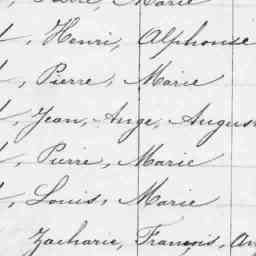 Marie
, Henri, Alphonse
, Pierre, Marie
, Jean, Ange, August
, Pierre, Marie
, Louis, Marie
Zacharie, François, An